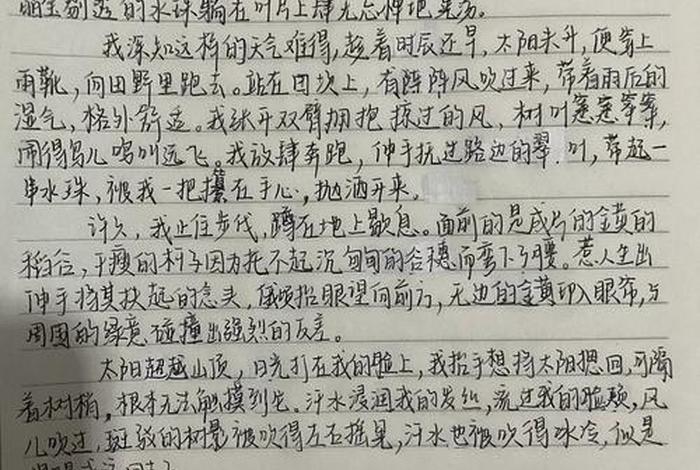 剔透的水珠躺在叶片上肆无忌惮地晃荡。
我深知这样的天气难得，趁着时辰还早，太阳未升，便穿上
雨靴，向田野里跑去。站在田坎上，有阵阵风吹过来，带着雨后的
湿气，格外舒适。我张开双臂拥抱掠过的风，树叶窸窸窣窣，
闹得鸟儿鸣叫远飞。我放肆奔跑，伸手抚过路边的翠叶，带起一
串水珠，被我一把攥在手心，抛洒开来。
许久，我止住步伐，蹲在地上歇息。面前的是成片的金黄的
稻谷，干瘦的杆子因为托不起沉甸甸的谷穗而弯下了腰。惹人生出
伸手将其扶起的念头，俄顷抬眼望向前方，无边的金黄映入眼帘，与
周围的绿意碰撞出强烈的反差。
太阳超越山顶，日光打在我的脸上，我抬手想将太阳摁回，可隔
着树梢，根本无法触摸到它。汗水浸润我的发丝，流过我的脸颊，风
儿吹过，斑驳的树影被吹得左右摇晃，汗水也被吹得冰冷，似是